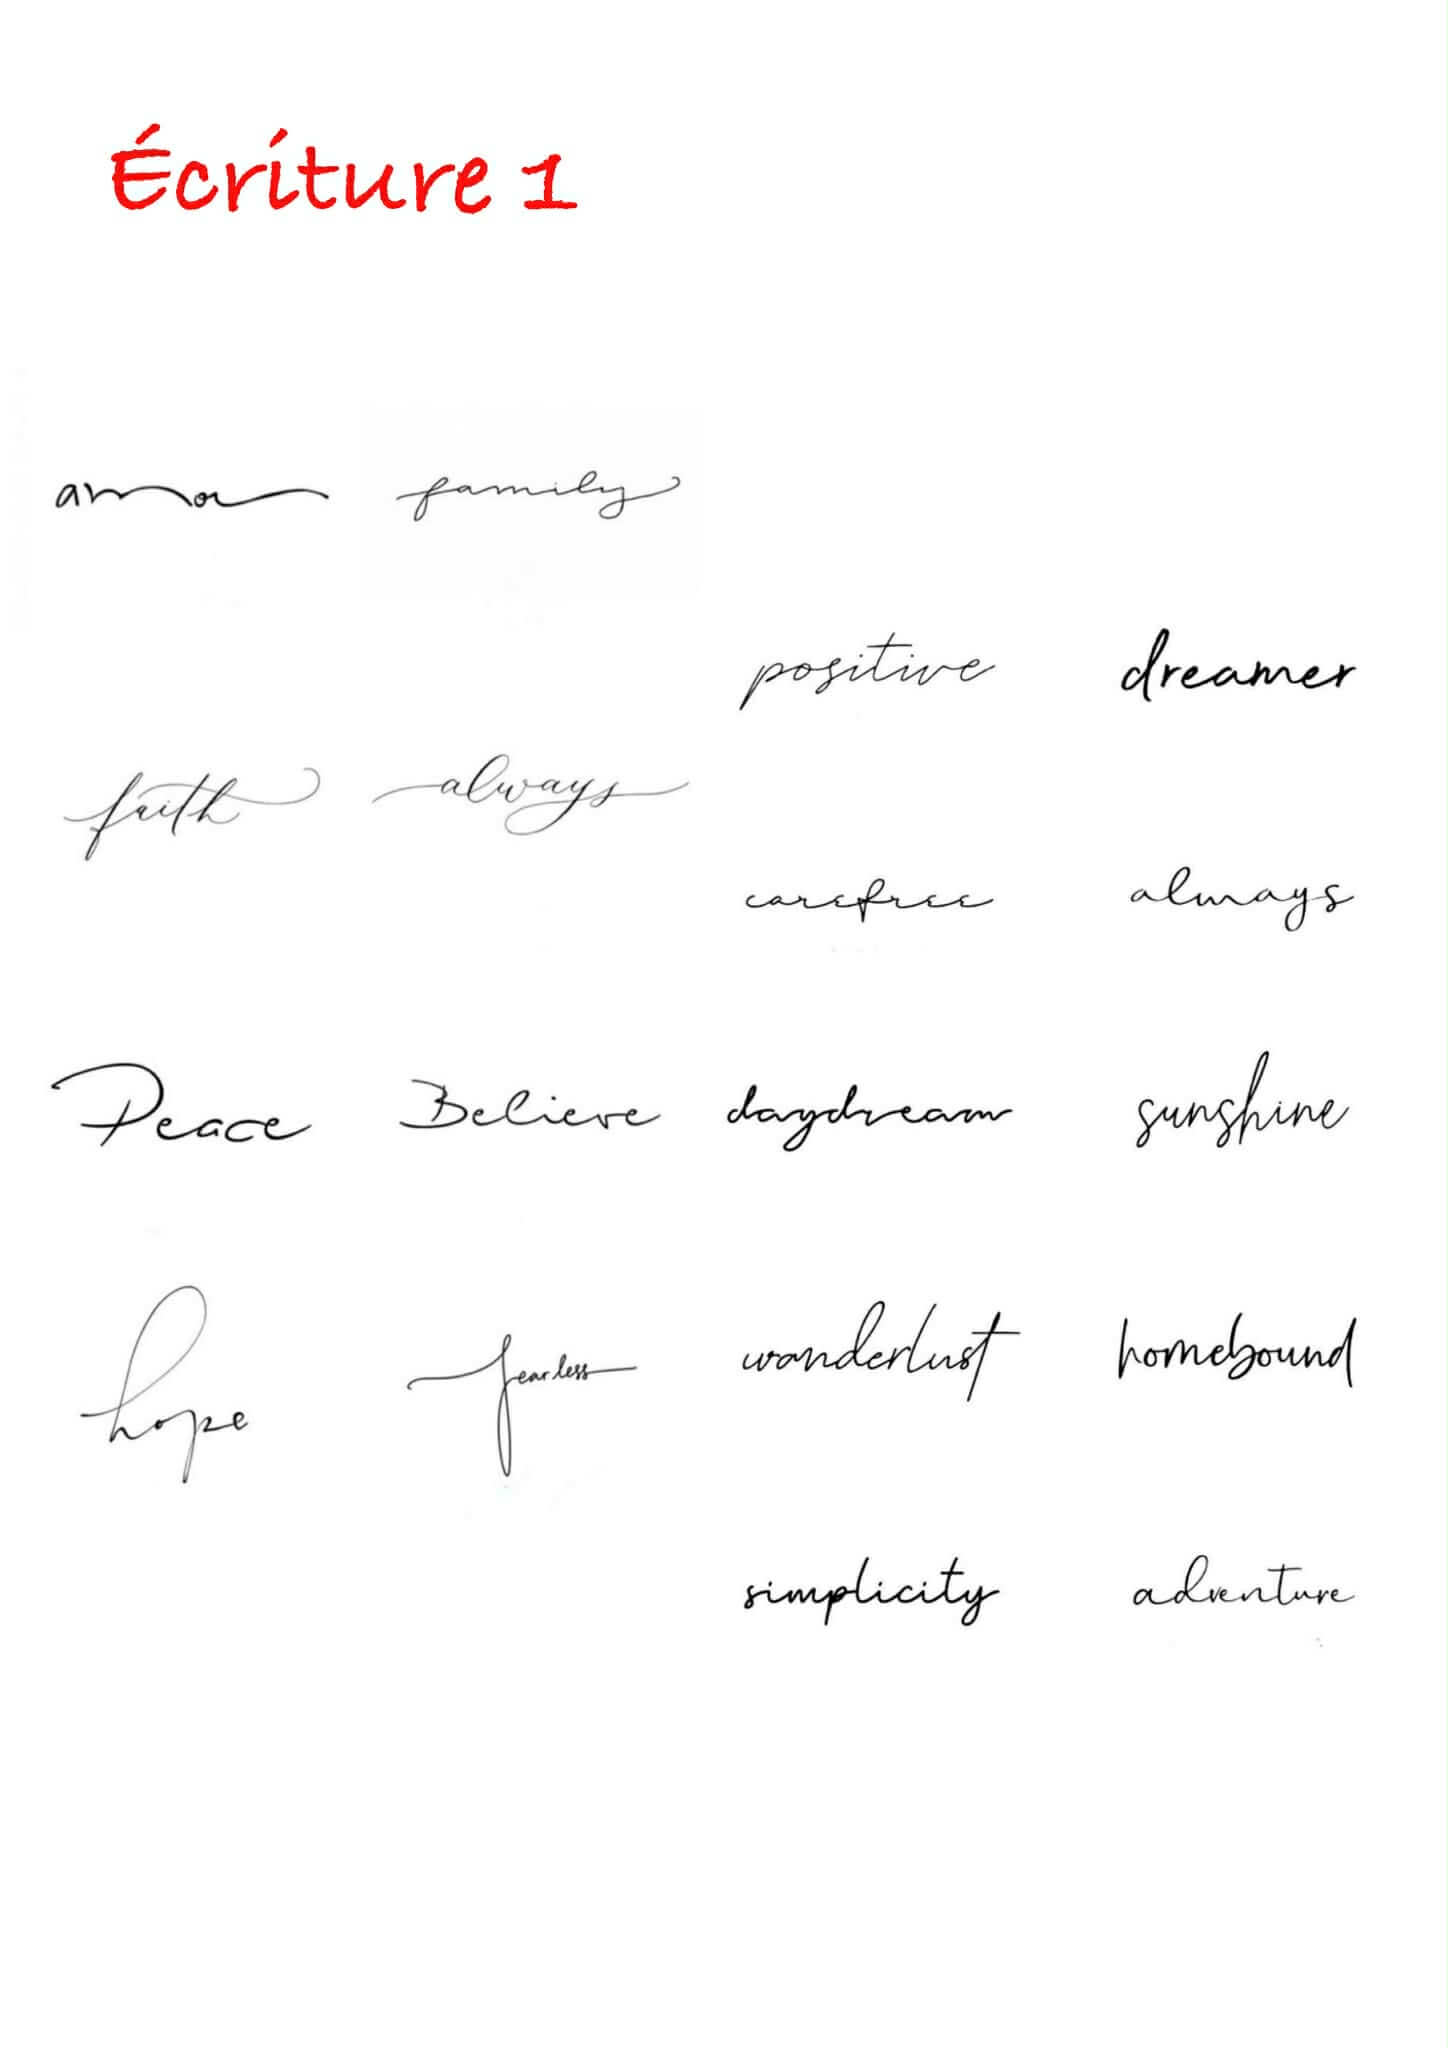 Écriture 1
amor family
positive dreamer
faith always
carefree always
Peace Believe daydream sunshine
hope fearless wanderlust homebound
simplicity adventure